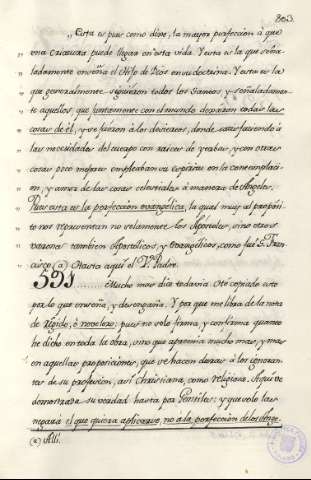 803.
„Esta es pues como dixe, la mayor perfeccion à que
una criatura puede llegar en esta vida. Y esta es la que seña-
ladamente enseña el Hijo de Dios en su doctrina. Y esta es la
que generalmente siguieron todos los Santos y señaladamen-
te aquellos, que juntamente con el mundo dexaron todas las
cosas de èl, y se fueron à los desiertos, donde satisfaciendo à
las necesidades del cuerpo con raices de yerbas, y con otras
cosas poco mejores empleaban su espiritu en la contemplaci-
on, y amor de las cosas celestiales à manera de Angeles.
Pues esta es la perfeccion evangèlica, la qual muy al propòsi-
to nos representan no solamente los Apostoles, sino otros
varones tambien Apostòlicos, y Evangèlicos, como fuè S. Fran-
cisco. (a) Hasta aqui el V. Padre.
591........ Mucho mas dia todavia
por lo que enseña, y desengaña. Y por que me libra de la nota
de rìgido, ò novelero; pues no solo firma, y confirma quanto
he dicho en toda la obra, sino que aprecia mucho mas, y mas
en aquellas proposiciones, que se hacen duras à los ignoran-
tes de su profesion, asi Christiana, como religiosa. Aqui se
demostrada su verdad hasta por Gentiles: y que solo las
negarà el que quiera aplicarse, no à la perfeccion de los
(a) Alli.